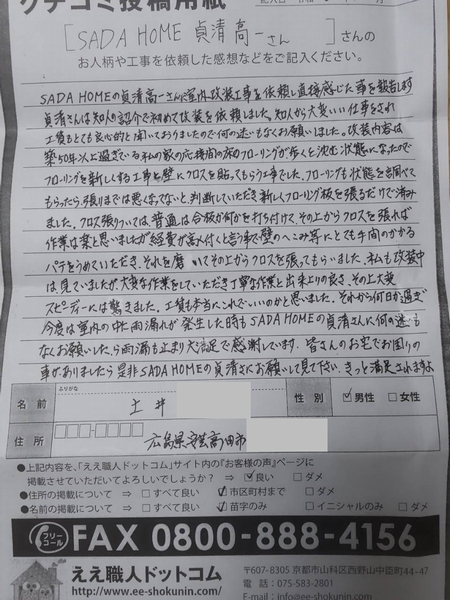 クチコミ投稿用紙
[SADA HOME 貞清高一さん]さんの
お人柄や工事を依頼した感想などをご記入ください。
SADA HOMEの貞清高一さんに室内改装工事を依頼し直接感じた事を報告します
貞清さんは知人の紹介で初めて改装を依頼しました。知人から大変いい仕事をされ
工賃もとても良心的と聞いておりましたので何の迷いもなくお願いしました。改装内容は
築50年以上過ぎている私の家の応接間の床のフローリングが歩くと沈む状態になったので
フローリングを新しくする工事と壁にクロスを貼ってもらう工事でした。フローリングも状態を
もらったら、張りまでは悪くなってないと判断していただき新しいフローリング板を張るだけで済み
ました。クロス張りついては、普通は合板か何かを打ち付けて、その上からクロスを張れば
作業は楽と思いましたが経費が高く付くと言う事で壁のへこみ等にとても手間のかかる
パテをうめていただき、それを磨いてその上からクロスを張ってもらいました。私も改装中
は見ていましたが大変な作業をしていただき丁寧な作業と出来上りの良さ、その上大変
スピーディーには驚きました。工賃も本当にこれでいいのかと思いました。それから何日か過ぎ
今度は室内の中に雨漏れが発生した時もSADA HOMEの貞清さんに何の迷いも
なくお願いしたら雨漏も止まり大満足で感謝しています。皆さんのお宅でお困りの
事がありましたら是非SADA HOMEの貞清さんにお願いして見て下さい。きっと満足されますよ
ふりがな
名前 土井 性別 ☑男性 □女性
住所 □□□-□□□□ 広島県安芸高田市
●上記内容を、「ええ職人ドットコム」サイト内の『お客様の声』ページに
掲載させていただいてよろしいでしょうか？ ⇒ ☑良い □ダメ
●住所の掲載について ⇒ □すべて良い ☑市区町村まで □ダメ
●名前の掲載について ⇒ □すべて良い ☑苗字のみ □イニシャルのみ □ダメ
フリーコール FAX 0800-888-4156
ええ職人ドットコム
http://www.ee-shokunin.com/
〒607-8305 京都市山科区西野山中臣町44-47
電話：075-583-2801
E-mail：info@ee-shokunin.com